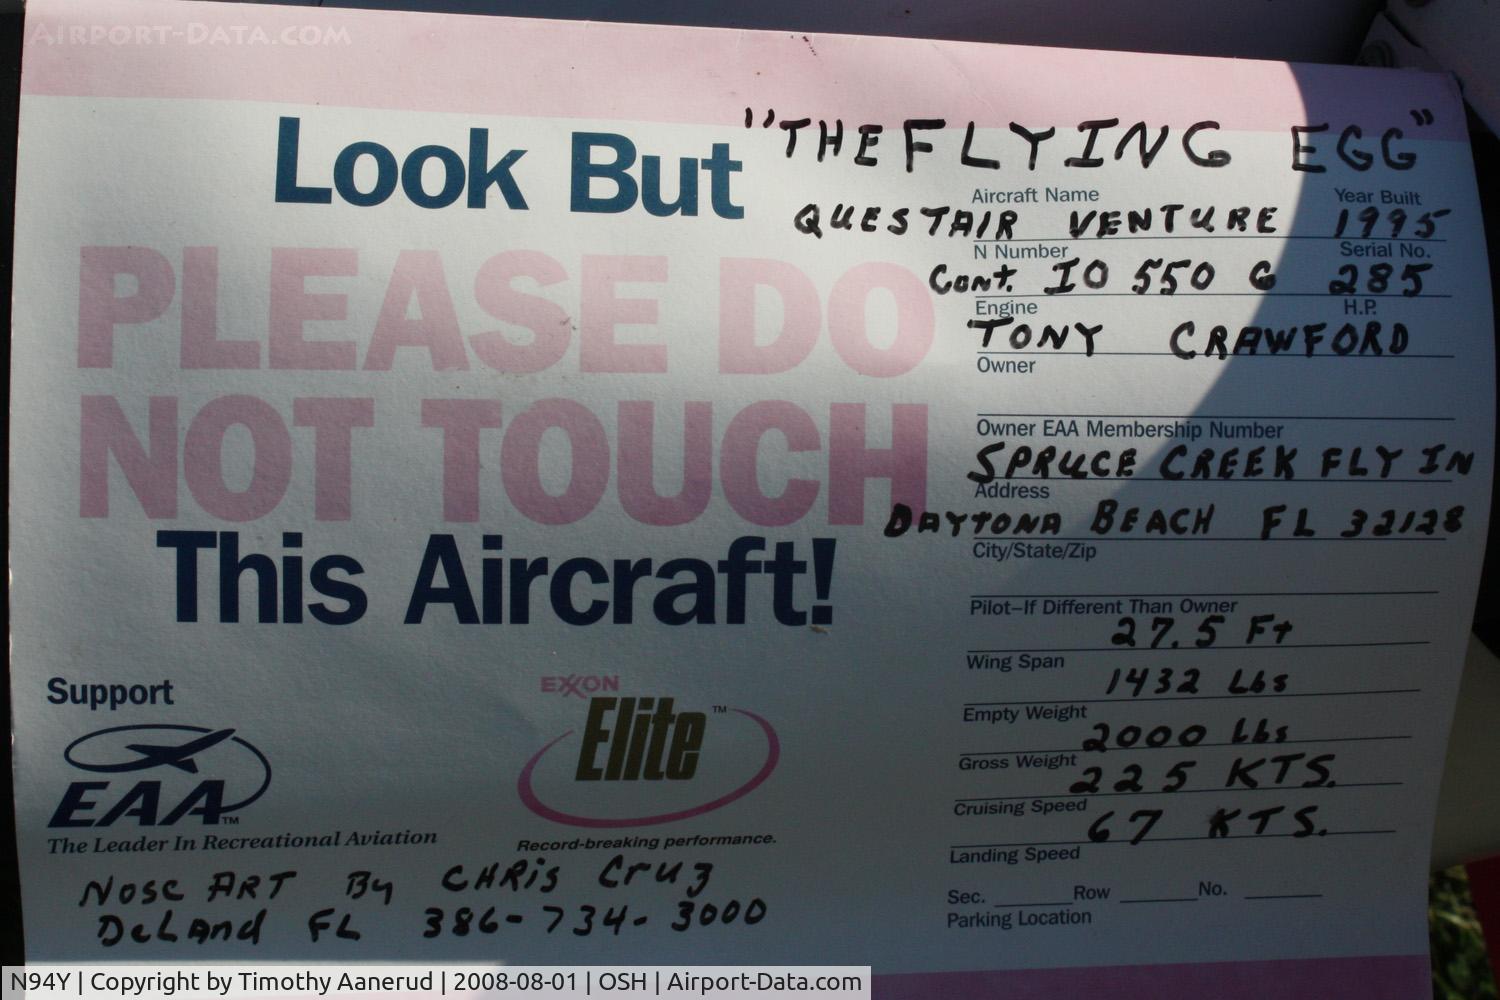 Airport-Data.com
Look But
PLEASE DO
NOT TOUCH
This Aircraft!
Support
EAA™
The Leader In Recreational Aviation
EXXON
Elite™
Record-breaking performance.
NOSE ART By CHRis Cruz
DeLAnd FL 386-734-3000
"THE FLYING EGG"
Aircraft Name Year Built
QUESTAIR VENTURE 1995
N Number Serial No.
Cont. IO 550 G 285
Engine H.P.
TONY CRAWFORD
Owner
Owner EAA Membership Number
SPRUCE CREEK FLY IN
Address
DAYTONA BEACH FL 32128
City/State/Zip
Pilot–If Different Than Owner
27.5 Ft
Wing Span
1432 Lbs
Empty Weight
2000 Lbs
Gross Weight
225 KTS.
Cruising Speed
67 KTS.
Landing Speed
Sec. Row No.
Parking Location
N94Y | Copyright by Timothy Aanerud | 2008-08-01 | OSH | Airport-Data.com